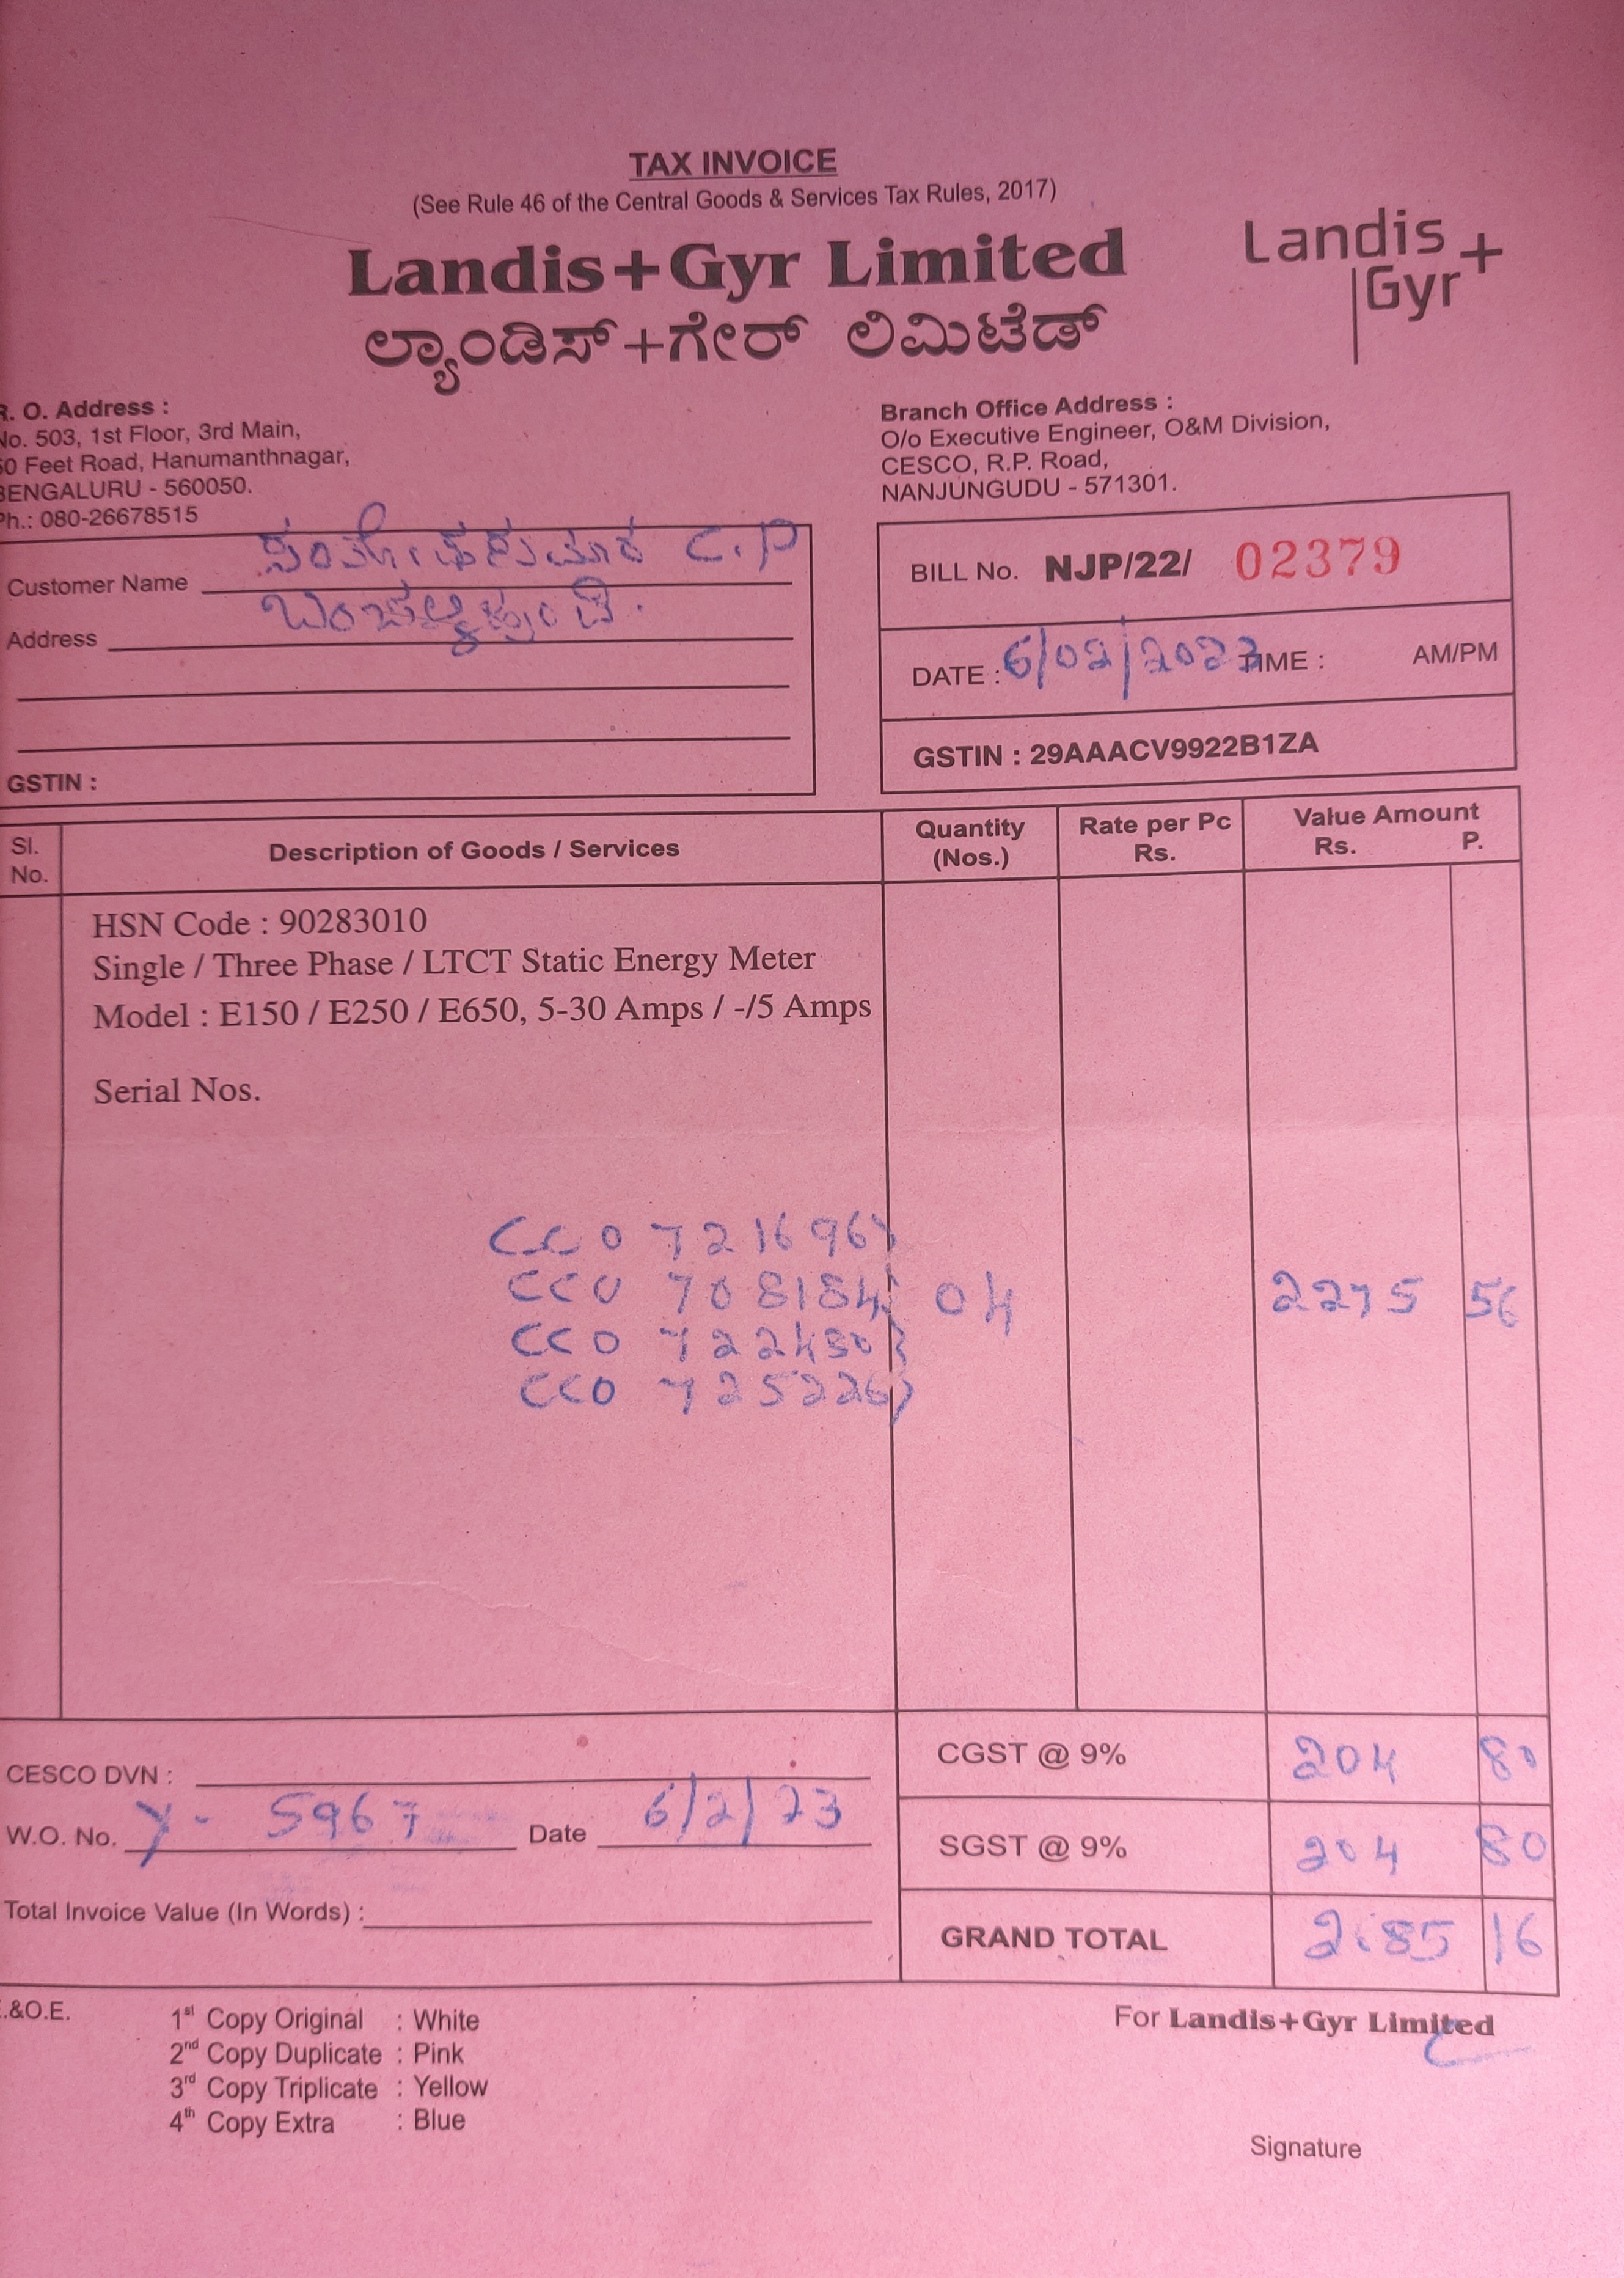 TAX INVOICE
(See Rule 46 of the Central Goods & Services Tax Rules, 2017)
Landis+Gyr Limited
ಲ್ಯಾಂಡಿಸ್+ಗೇರ್ ಲಿಮಿಟೆಡ್
Landis+
Gyr
R. O. Address :
No. 503, 1st Floor, 3rd Main,
50 Feet Road, Hanumanthnagar,
BENGALURU - 560050.
Ph.: 080-26678515
Branch Office Address :
O/o Executive Engineer, O&M Division,
CESCO, R.P. Road,
NANJUNGUDU - 571301.
Customer Name C.P
Address
GSTIN :
BILL No. NJP/22/ 02379
DATE : 6/02/2023 TIME : AM/PM
GSTIN : 29AAACV9922B1ZA
Sl. No. Description of Goods / Services Quantity (Nos.) Rate per Pc Rs. Value Amount Rs. P.
HSN Code : 90283010
Single / Three Phase / LTCT Static Energy Meter
Model : E150 / E250 / E650, 5-30 Amps / -/5 Amps
Serial Nos.
CCO 721696
CCO 708184 04 2275 56
CCO 722450
CCO 725226
CGST @ 9% 204 80
SGST @ 9% 204 80
GRAND TOTAL 16
CESCO DVN :
W.O. No. Y- 5967 Date 6/2/23
Total Invoice Value (In Words) :
.&O.E.
1st Copy Original : White
2nd Copy Duplicate : Pink
3rd Copy Triplicate : Yellow
4th Copy Extra : Blue
For Landis+Gyr Limited
Signature